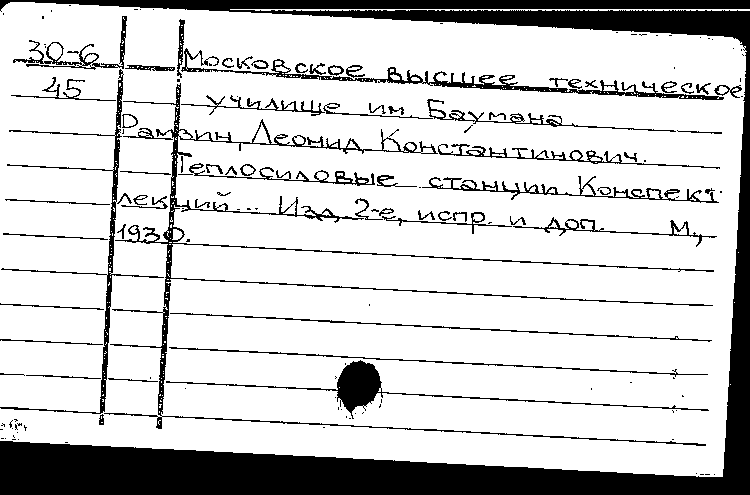 30-6 Московское высшее техническое
45 училище им. Баумана.
Рамзин, Леонид Константинович.
Теплосиловые станции. Конспект
лекций... Изд. 2-е, испр. и доп. М.,
1930.